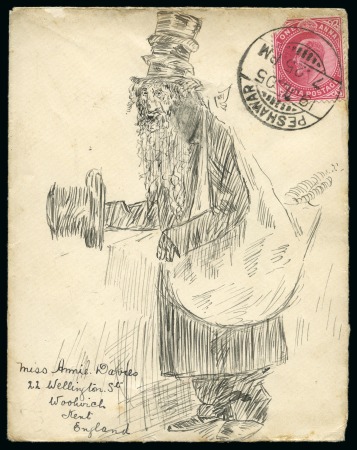 ONE ANNA
INDIA POSTAGE
PESHAWAR
Miss Annie Davies
22 Wellington St
Woolwich
Kent
England